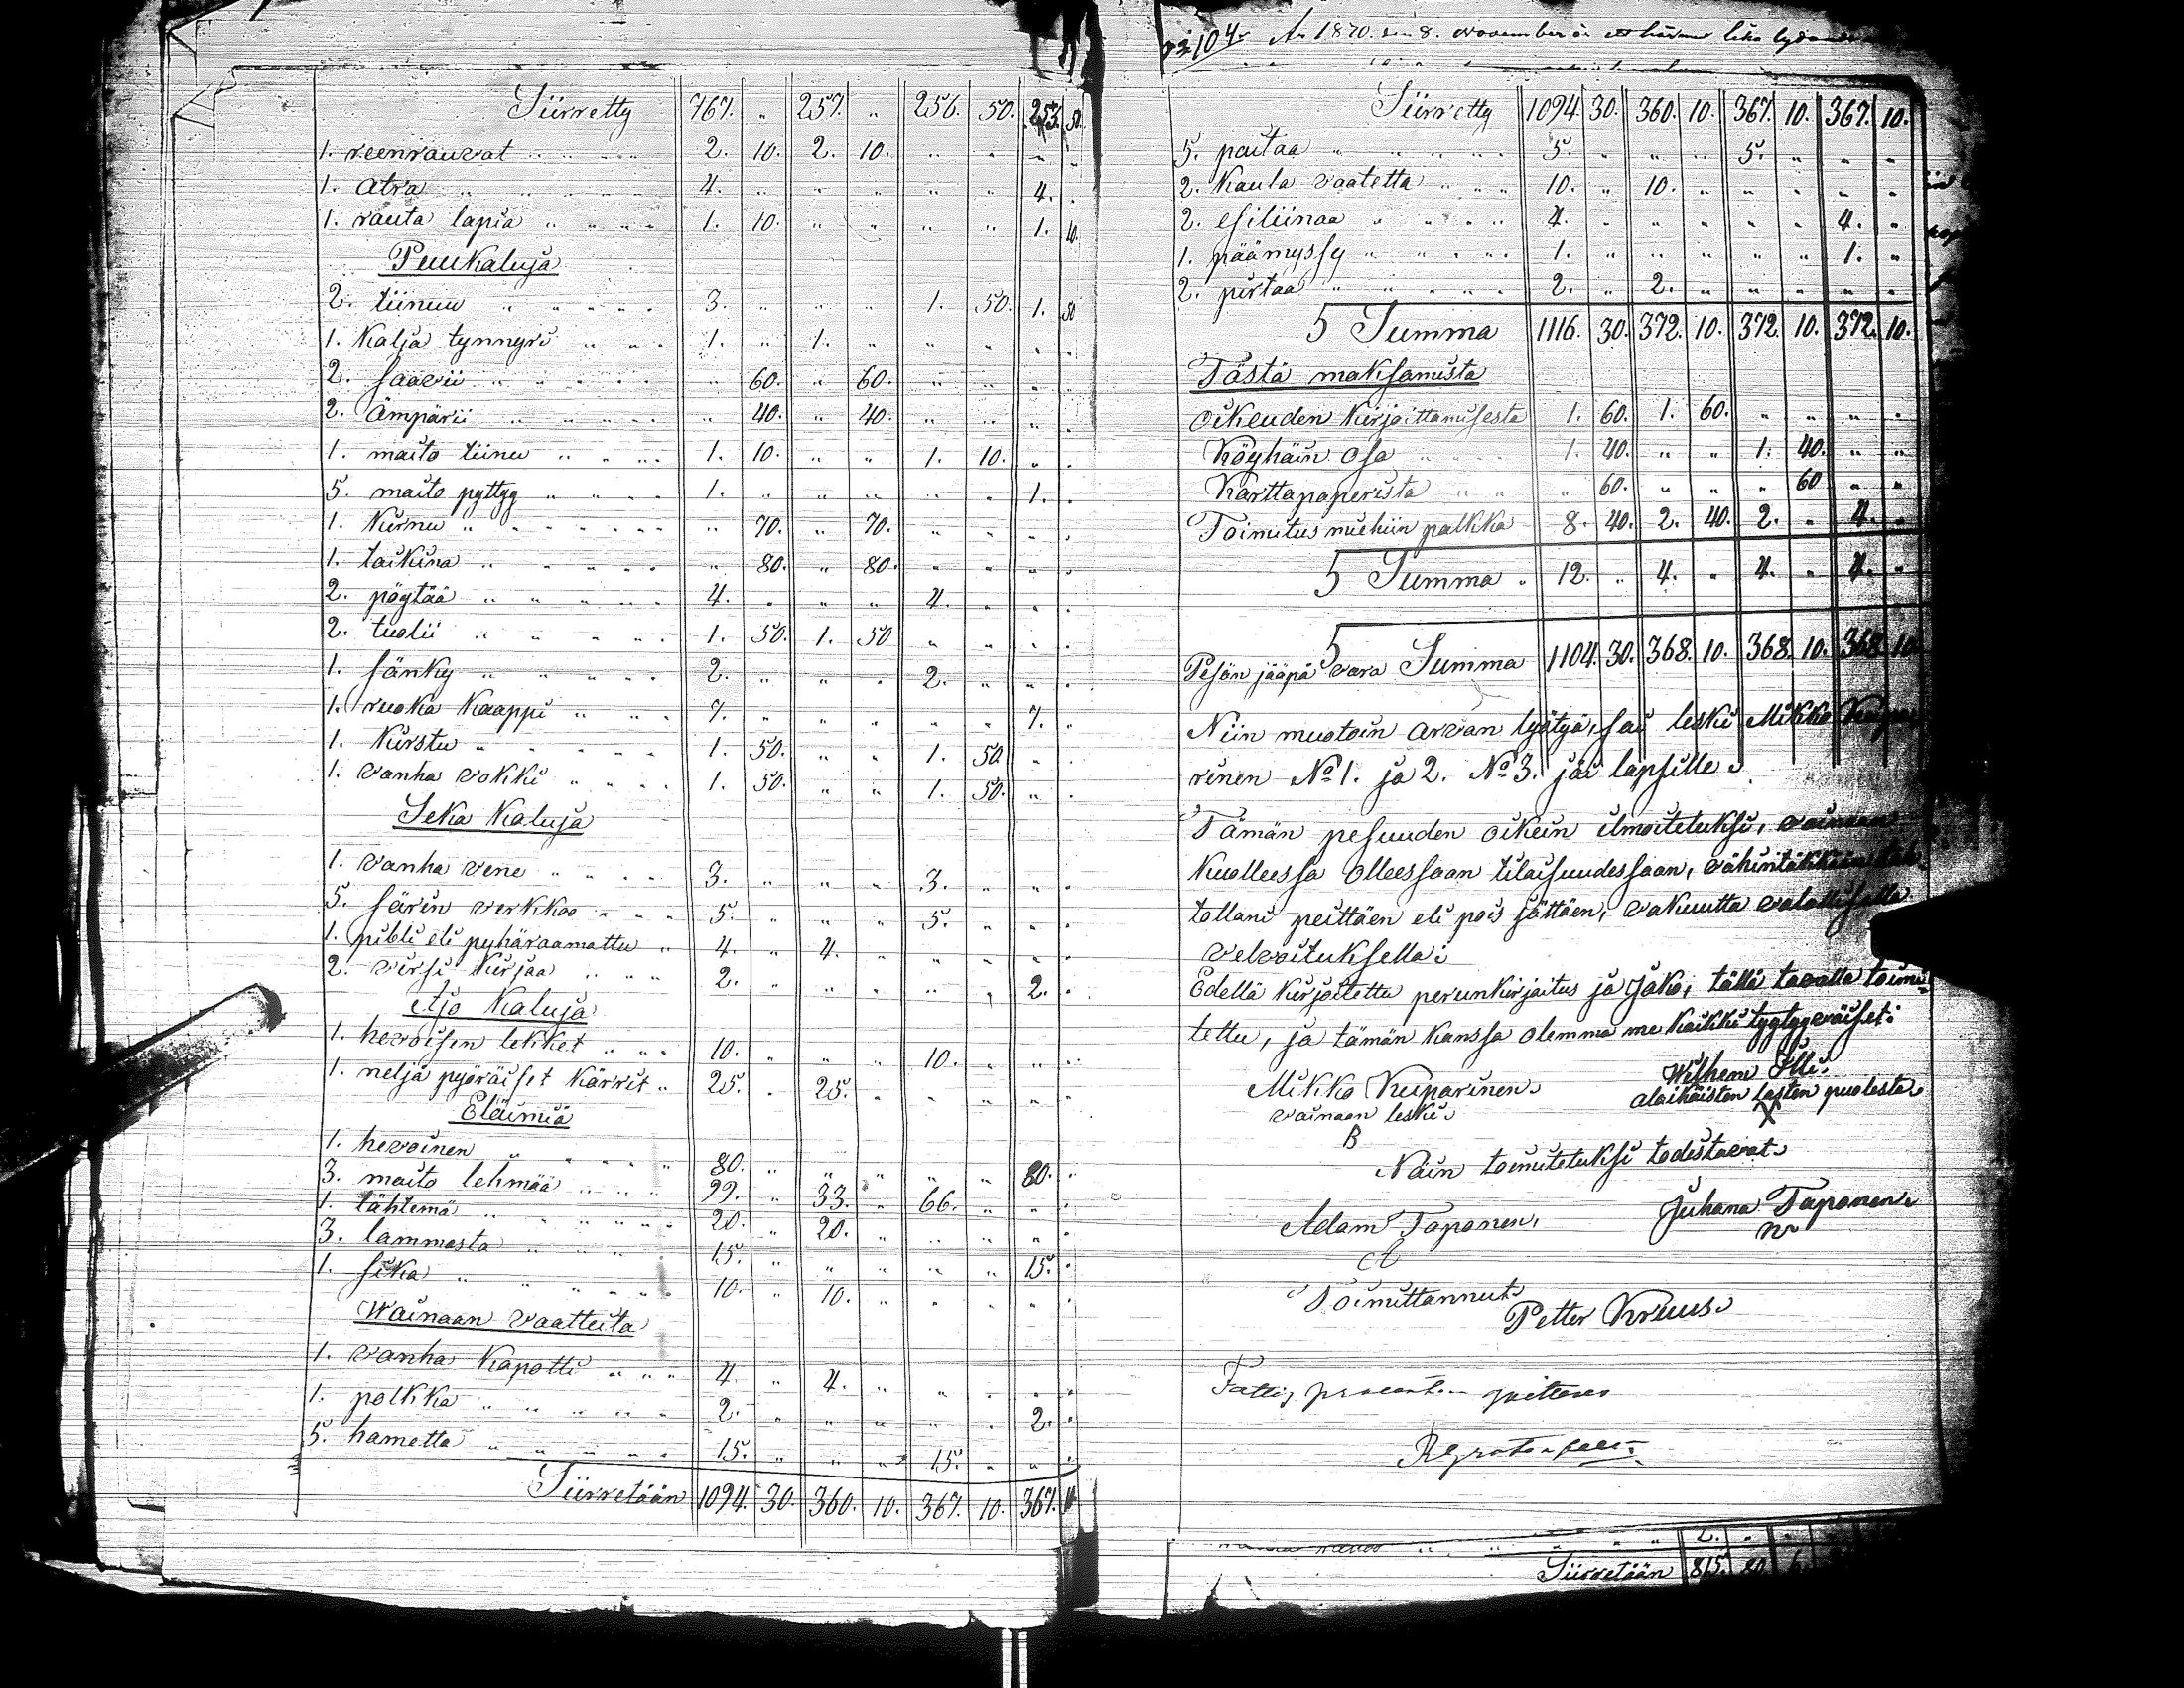 Siirretty 767. " 257. " 256. 50. 253. 50.
1. reenrauvat " " 2. 10. 2. 10. " " " "
1. atra " " 4. " " " " " 4. "
1. rauta lapia " " 1. 10. " " " " 1. 10.
Puukaluja
2. tiinuu " " 3. " " " 1. 50. 1. 50
1. Kalja tynnyri " " 1. " 1. " " " " "
2. saavii " " " 60. " 60. " " " "
2. Ämpärii " " " 40. " 40. " " " "
1. maito tiinu " " 1. 10. " " 1. 10. " "
5. maito pyttyy " " 1. " " " " " 1. "
1. Kirnu " " " 70. " 70. " " " "
1. taikina " " " 80. " 80. " " " "
2. pöytää " " 4. " " " 4. " " "
2. tuolii " " 1. 50. 1. 50 " " " "
1. sänky " " 2. " " " 2. " " "
1. ruoka Kaappi " " 7. " " " " " 7. "
1. Kirstu " " 1. 50. " " 1. 50. " "
1. vanha vokki " " 1. 50. " " 1. 50. " "
Seka Kaluja
1. vanha vene " " 3. " " " 3. " " "
5. särin verkkoo " " 5. " " " 5. " " "
1. pibli eli pyhäraamattu " 4. " 4. " " " " "
2. virsi Kirjaa " " 2. " " " " " 2. "
Ajo Kaluja
1. hevoisen lekket " " 10. " " " 10. " " "
1. neljä pyöräiset Kärrit " 25. " 25. " " " " "
Eläimiä
1. hevoinen " " 80. " " " " " 80. "
3. maito lehmää " " 99. " 33. " 66. " " "
1. tähtemä " " 20. " 20. " " " " "
3. lammasta " " 15. " " " " " 15. "
1. sika " " 10. " 10. " " " " "
Wainaan vaatteita
1. vanha Kapotti " " 4. " 4. " " " " "
1. polkka " " 2. " " " " " 2. "
5. hametta " " 15. " " " 15. " " "
Siirretään 1094. 30. 360. 10. 367. 10. 367. 10
104. År 1870. den 8. November
Siirretty 1094. 30. 360. 10. 367. 10. 367. 10.
5. paitaa " " 5. " " " 5. " " "
2. Kaula vaatetta " " 10. " 10. " " " " "
2. esiliinaa " " 4. " " " " " 4. "
1. päämyssy " " 1. " " " " " 1. "
2. pirtaa " " 2. " 2. " " " " "
Summa 1116. 30. 372. 10. 372. 10. 372. 10.
Tästä maksamista
oikeuden Kirjoittamisesta 1. 60. 1. 60. " " " "
Köyhäin osa " " 1. 40. " " 1. 40. " "
Karttapaperista " " " 60. " " " 60 " "
Toimitus miehiin palkka 8. 40. 2. 40. 2. " 4. "
Summa " 12. " 4. " 4. " 4. "
Pesän jääpä vara Summa 1104. 30. 368. 10. 368. 10. 368. 10
Niin muotoin arvan lyötyä, sai leski Mikko Kupa
rinen No 1. ja 2. No 3. jäi lapsille.
Tämän pesuuden oikein ilmoitetuksi, vainaan
Kuolleessa olleessaan tilaisuudessaan, vähintäkkään
tollani peittäen eli pois jättäen, vakuutta valallisella
velvoituksella:
Edellä Kirjoitettu perunkirjoitus ja Jako, tällä tavalla toimi=
tettu, ja tämän kanssa olemma me kaikki tyytyyväiset:
Mikko Kuparinen. Wilhem Illi.
vainaan leski. alaikäisten lasten puolesta.
Näin toimitetuksi todistavat.
Adam Taponen, Juhana Taponen.
Toimittannut.
Petter Kruus.
Siirretään 815. 80.